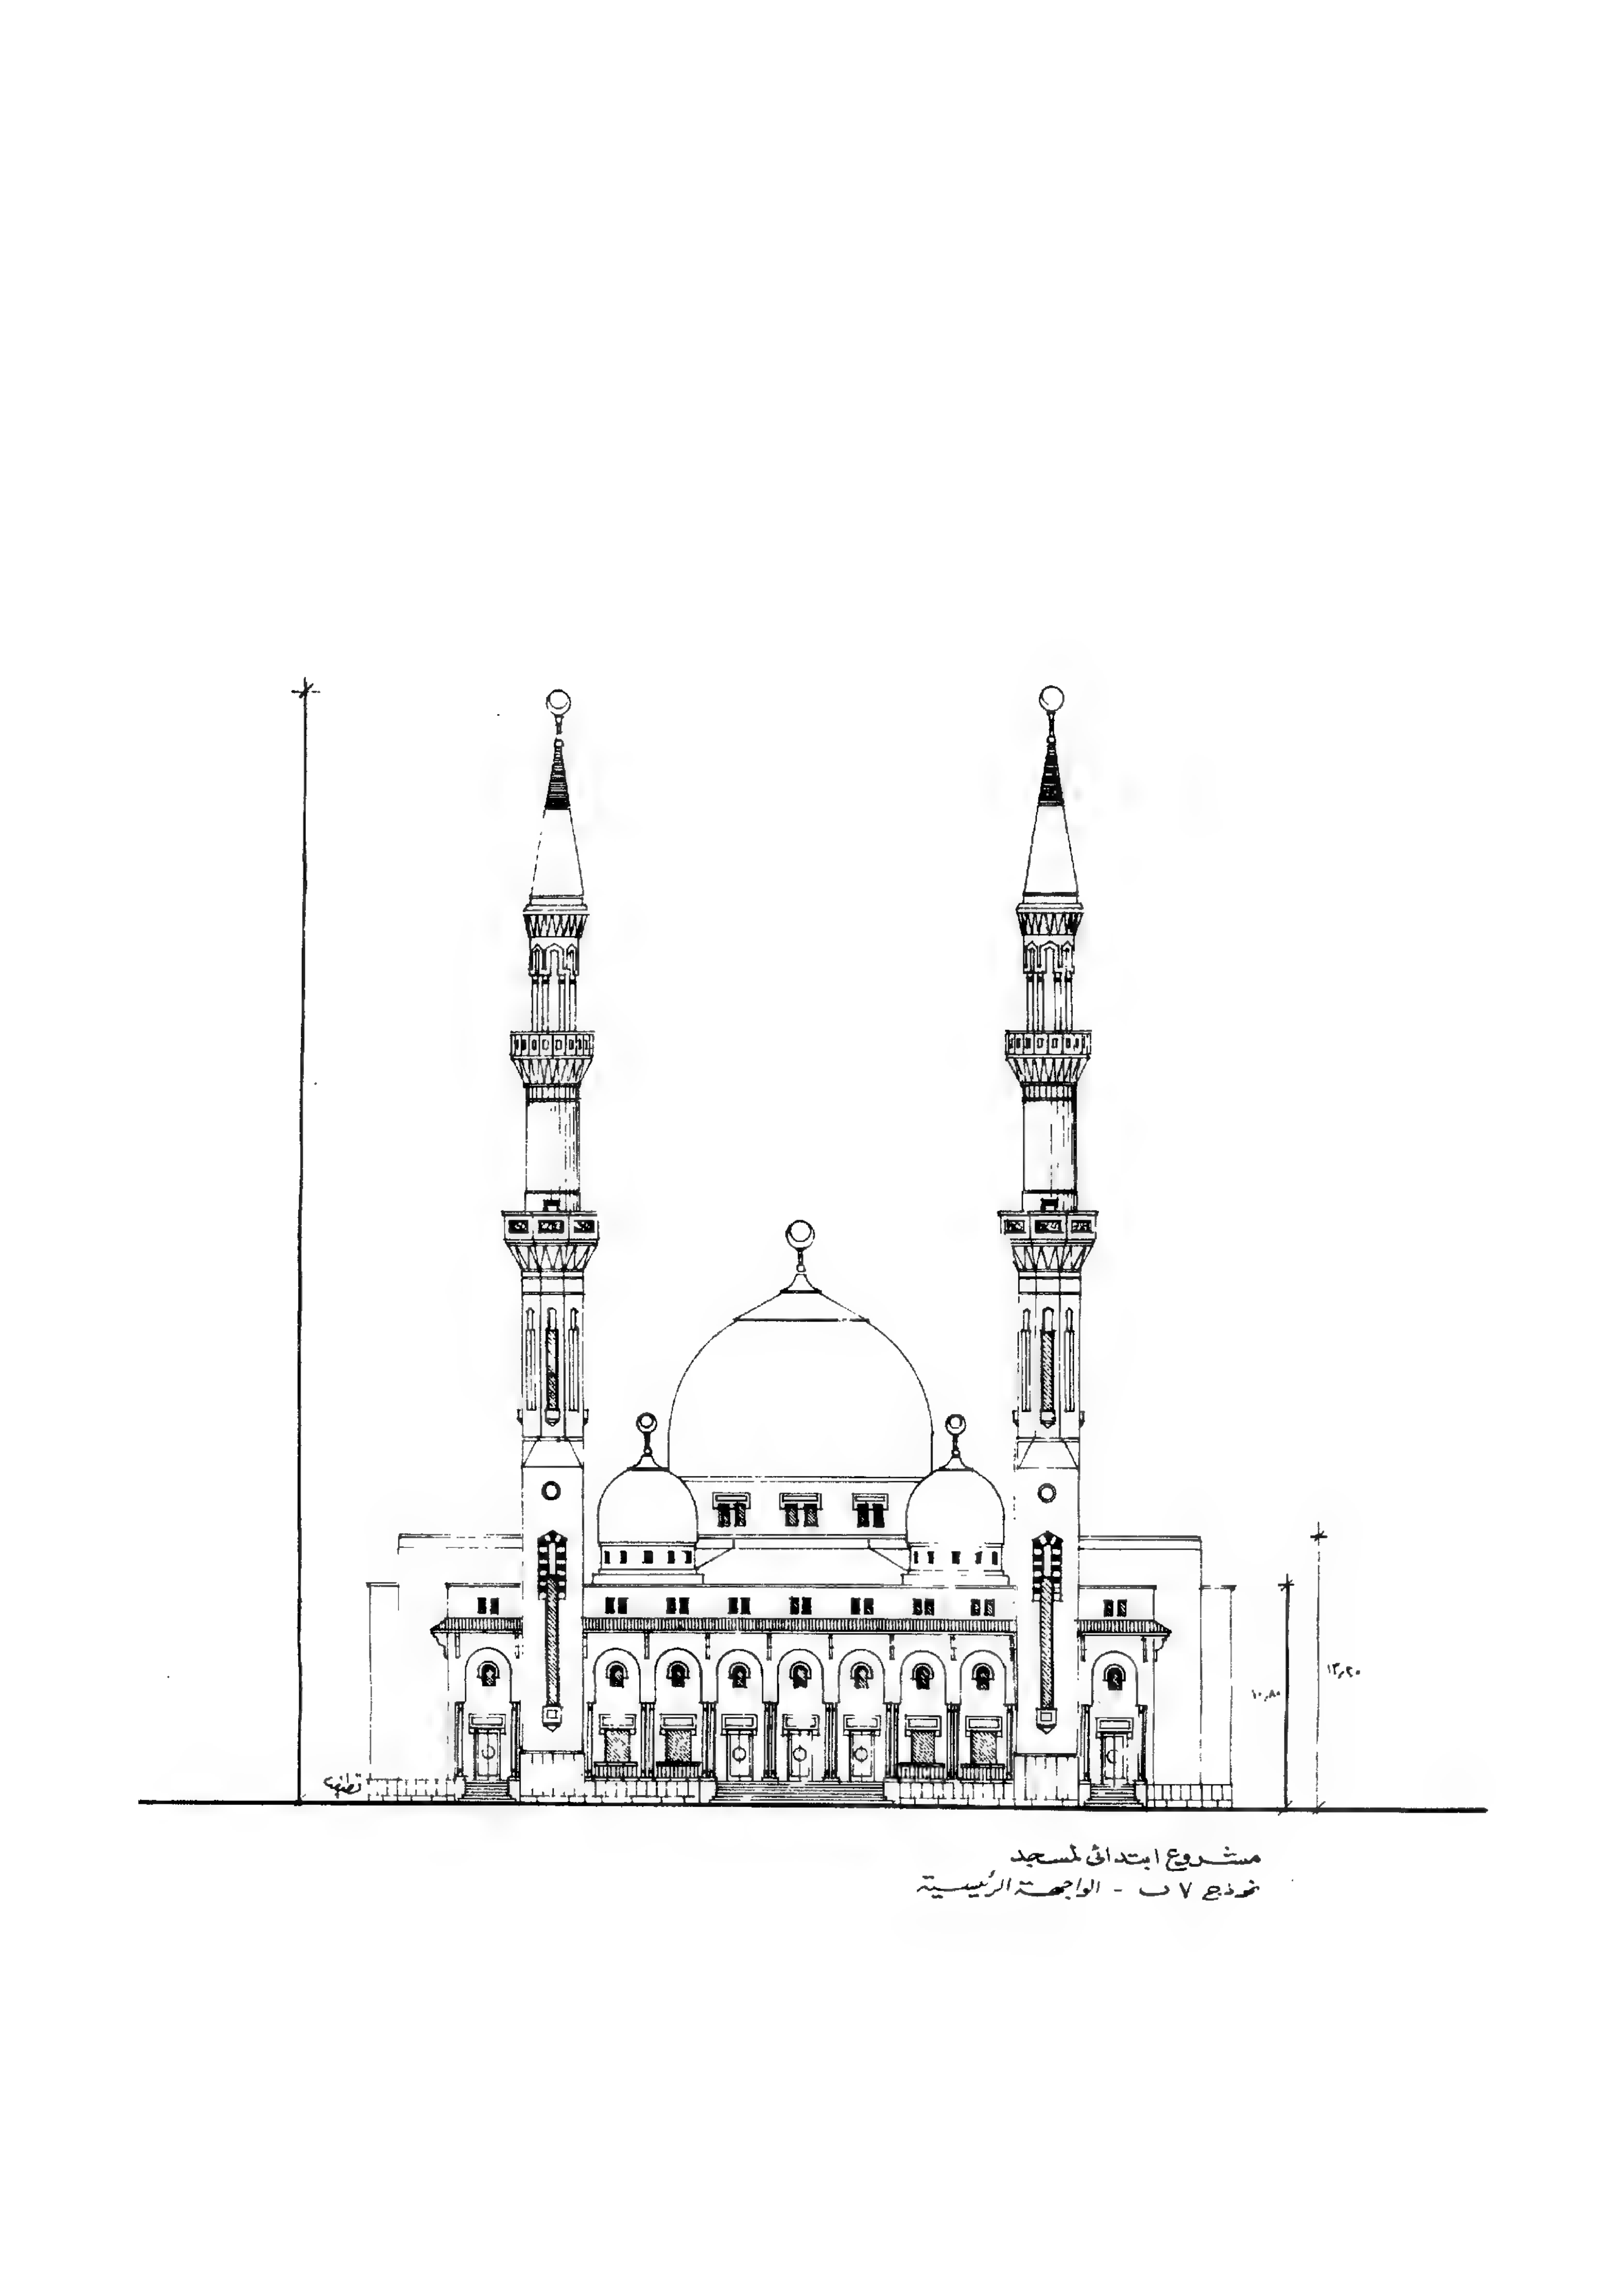 ١٣٫٢٠
١٠٫٨٠
مشروع ابتدائى لمسجد
نموذج ٧ ب - الواجهة الرئيسية